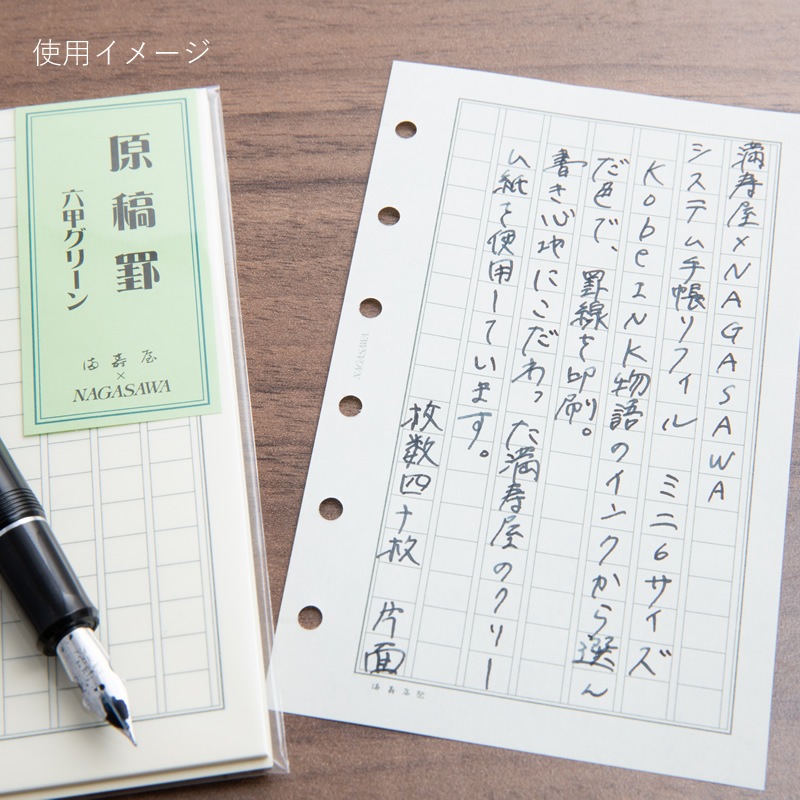 使用イメージ
原稿罫
六甲グリーン
満寿屋
×
NAGASAWA
満寿屋×NAGASAWA
システム手帳リフィル ミニ6サイズ
KobeINK物語のインクから選ん
だ色で、罫線を印刷。
書き心地にこだわった満寿屋のクリー
ム紙を使用しています。
枚数四十枚 片面
NAGASAWA
満寿屋製